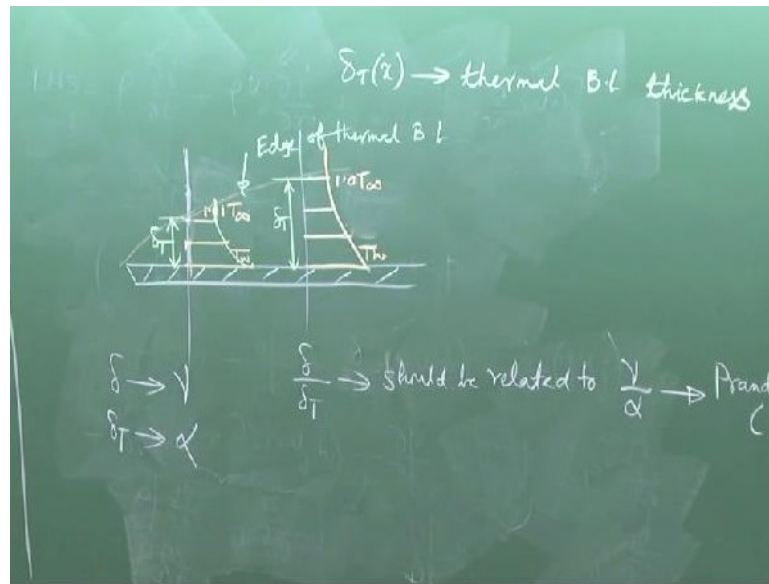 δ_T(x) → thermal B.L thickness
Edge of thermal B L
1.01T∞
T_w
δ_T
T∞
T_w
δ_T
δ → ν
δ/δ_T → should be related to ν/α → Prand
(
δ_T → α